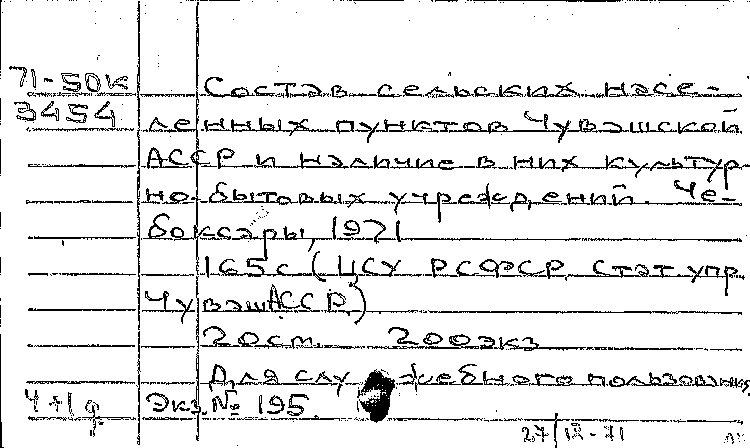 71-50к Состав сельских насе-
3454 ленных пунктов Чувашской
АССР и наличие в них культур
но-бытовых учреждений. Че-
боксары, 1971
165с (ЦСУ РСФСР. Стат упр.
Чуваш АССР)
20см. 200экз
Для служебного пользования
4+1 ф. Экз. № 195.
27/IX-71